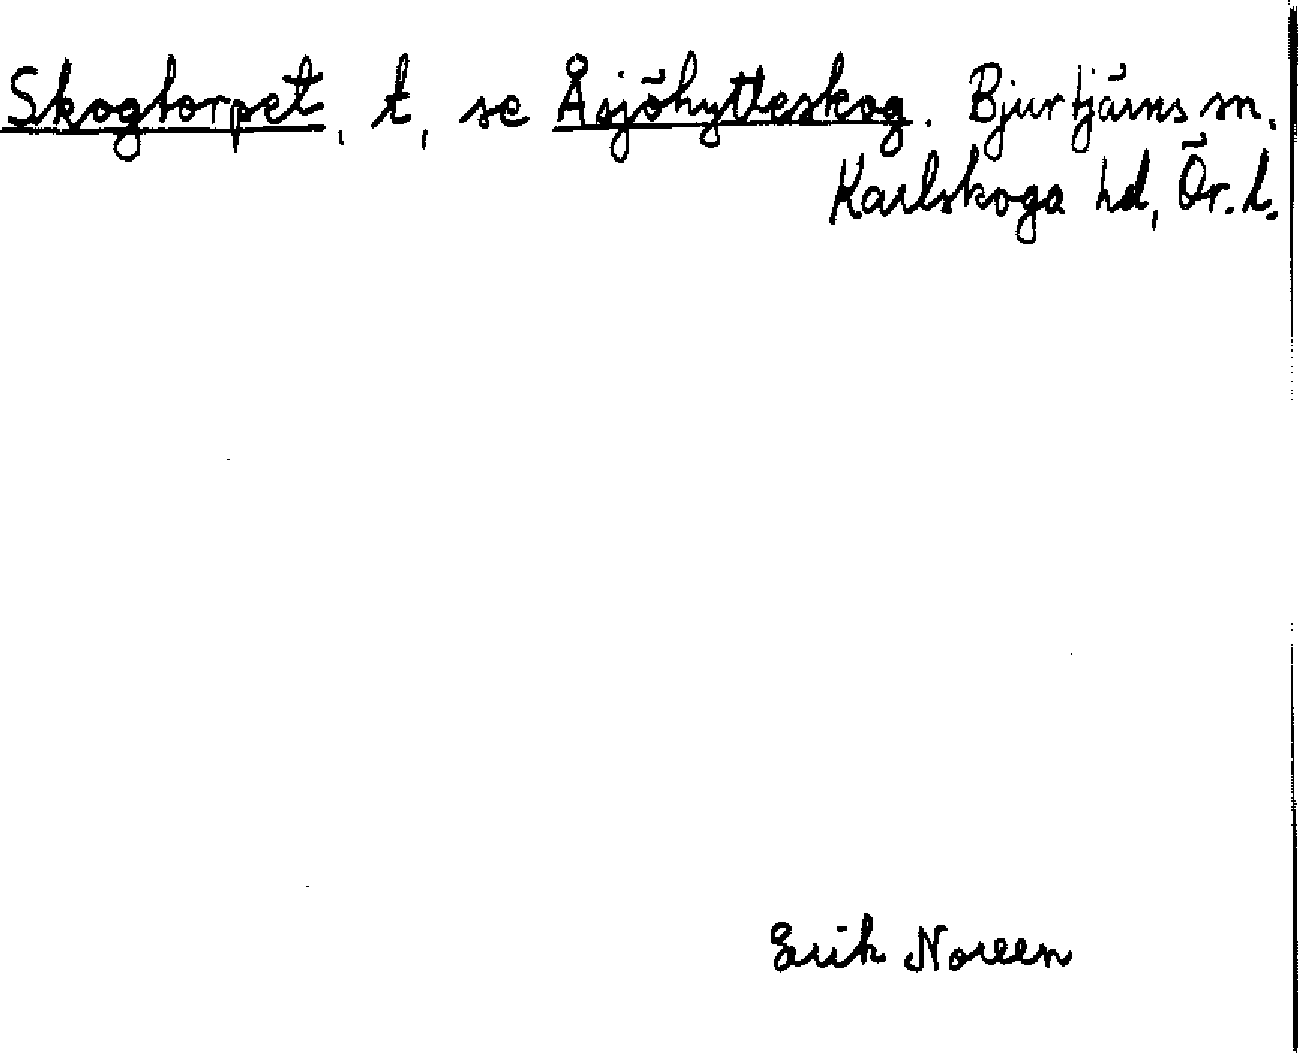 Skogtorpet, t, se Åsjöhytteskog. Bjurtjärns sn.
Karlskoga hd, Ör. l.
Erik Noreen